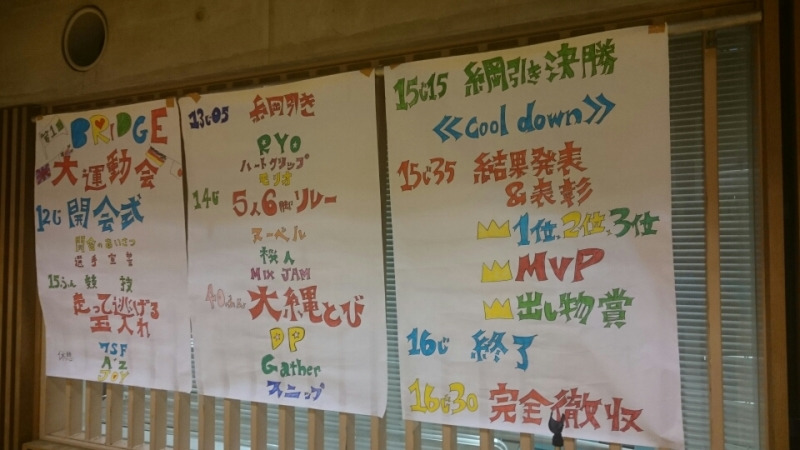 第1回
BRIDGE
大運動会
12じ 開会式
開会のあいさつ
選手宣誓
15ふん 競技
走って逃げる
玉入れ
TSF
A'z
休憩
13じ05 綱引き
RYO
ハートグリップ
モリオ
14じ 5人6脚リレー
ヌーベル
桜人
MIX JAM
40ふん 大縄とび
DP
Gather
スニップ
15じ15 綱引き決勝
≪Cool down≫
15じ35 結果発表
&表彰
1位、2位、3位
MVP
出し物賞
16じ 終了
16じ30 完全撤収